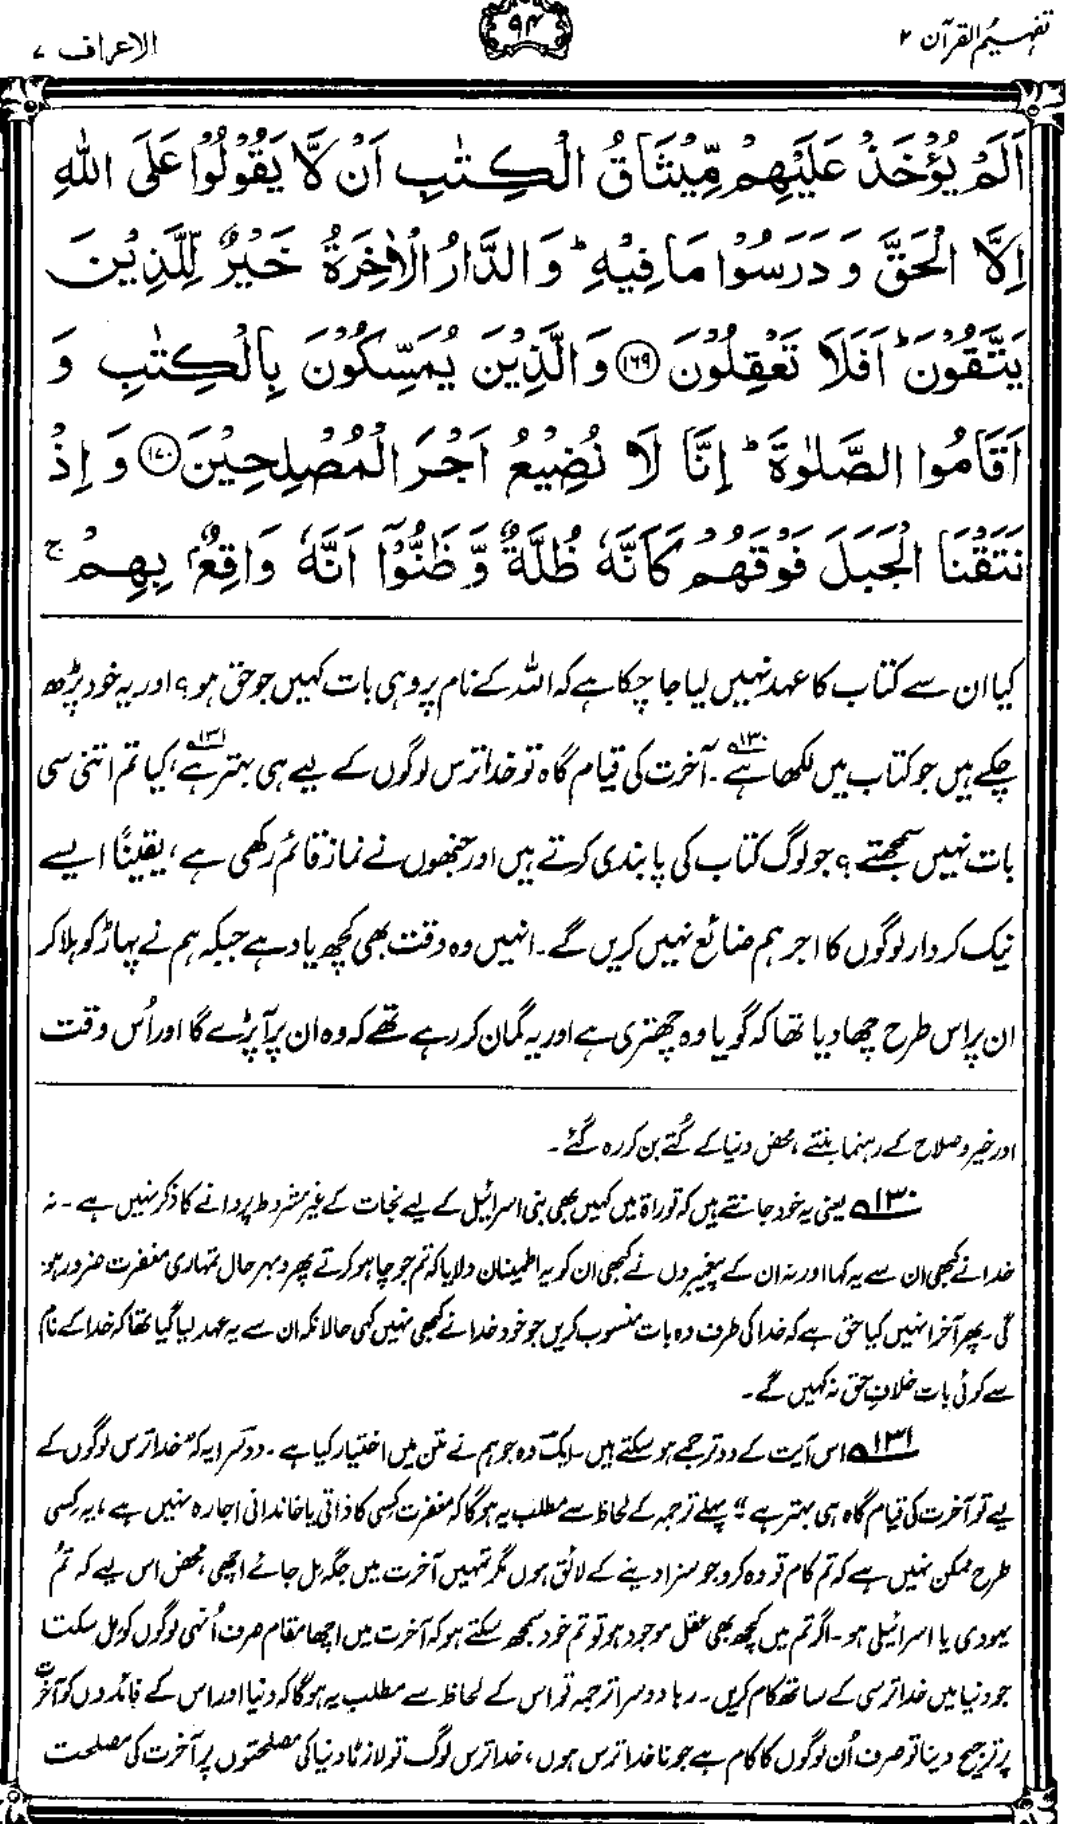 تفہیم القرآن ۲
۹۴
الاعراف ۷
اَلَمْ يُؤْخَذْ عَلَيْهِمْ مِّيْثَاقُ الْكِتٰبِ اَنْ لَّا يَقُوْلُوْا عَلَى اللّٰهِ
اِلَّا الْحَقَّ وَ دَرَسُوْا مَا فِيْهِ ؕ وَ الدَّارُ الْاٰخِرَةُ خَيْرٌ لِّلَّذِيْنَ
يَتَّقُوْنَ ؕ اَفَلَا تَعْقِلُوْنَ ﴿۱۶۹﴾ وَ الَّذِيْنَ يُمَسِّكُوْنَ بِالْكِتٰبِ وَ
اَقَامُوا الصَّلٰوةَ ؕ اِنَّا لَا نُضِيْعُ اَجْرَ الْمُصْلِحِيْنَ ﴿۱۷۰﴾ وَ اِذْ
نَتَقْنَا الْجَبَلَ فَوْقَهُمْ كَاَنَّهٗ ظُلَّةٌ وَّ ظَنُّوْۤا اَنَّهٗ وَاقِعٌۢ بِهِمْ ۚ
کیا ان سے کتاب کا عہد نہیں لیا جا چکا ہے کہ اللہ کے نام پر وہی بات کہیں جو حق ہو؟ اور یہ خود پڑھ
چکے ہیں جو کتاب میں لکھا ہے ۱۳۰؎۔ آخرت کی قیام گاہ تو خدا ترس لوگوں کے لیے ہی بہتر ہے ۱۳۱؎، کیا تم اتنی سی
بات نہیں سمجھتے؟ جو لوگ کتاب کی پابندی کرتے ہیں اور جنھوں نے نماز قائم رکھی ہے، یقینًا ایسے
نیک کردار لوگوں کا اجر ہم ضائع نہیں کریں گے۔ انہیں وہ وقت بھی کچھ یاد ہے جبکہ ہم نے پہاڑ کو ہلا کر
ان پر اس طرح چھا دیا تھا کہ گویا وہ چھتری ہے اور یہ گمان کر رہے تھے کہ وہ ان پر آپڑے گا اور اُس وقت
اور خیر و صلاح کے رہنما بنتے، محض دنیا کے کُتے بن کر رہ گئے۔
۱۳۰؎ یعنی یہ خود جانتے ہیں کہ توراۃ میں کہیں بھی بنی اسرائیل کے لیے نجات کے غیر مشروط پروانے کا ذکر نہیں ہے۔ نہ
خدا نے کبھی ان سے یہ کہا اور نہ ان کے پیغمبروں نے کبھی ان کو یہ اطمینان دلایا کہ تم جو چاہو کرتے پھرو بہر حال تمہاری مغفرت ضرور ہو
گی۔ پھر آخر انہیں کیا حق ہے کہ خدا کی طرف وہ بات منسوب کریں جو خود خدا نے کبھی نہیں کہی حالانکہ ان سے یہ عہد لیا گیا تھا کہ خدا کے نام
سے کوئی بات خلافِ حق نہ کہیں گے۔
۱۳۱؎ اس آیت کے دو ترجمے ہو سکتے ہیں۔ ایک وہ جو ہم نے متن میں اختیار کیا ہے۔ دوسرا یہ کہ ”خدا ترس لوگوں کے
لیے تو آخرت کی قیام گاہ ہی بہتر ہے“ پہلے ترجمہ کے لحاظ سے مطلب یہ ہوگا کہ مغفرت کسی کا ذاتی یا خاندانی اجارہ نہیں ہے، یہ کسی
طرح ممکن نہیں ہے کہ تم کام تو وہ کرو جو سزا دینے کے لائق ہوں مگر تمہیں آخرت میں جگہ مل جائے اچھی، محض اس لیے کہ تم
یہودی یا اسرائیلی ہو۔ اگر تم میں کچھ بھی عقل موجود ہو تو تم خود سمجھ سکتے ہو کہ آخرت میں اچھا مقام صرف اُنہی لوگوں کو مل سکتا
جو دنیا میں خدا ترسی کے ساتھ کام کریں۔ رہا دوسرا ترجمہ تو اس کے لحاظ سے مطلب یہ ہوگا کہ دنیا اور اس کے فائدوں کو آخرت
پر ترجیح دینا تو صرف اُن لوگوں کا کام ہے جو نا خدا ترس ہوں، خدا ترس لوگ تو لازمًا دنیا کی مصلحتوں پر آخرت کی مصلحت